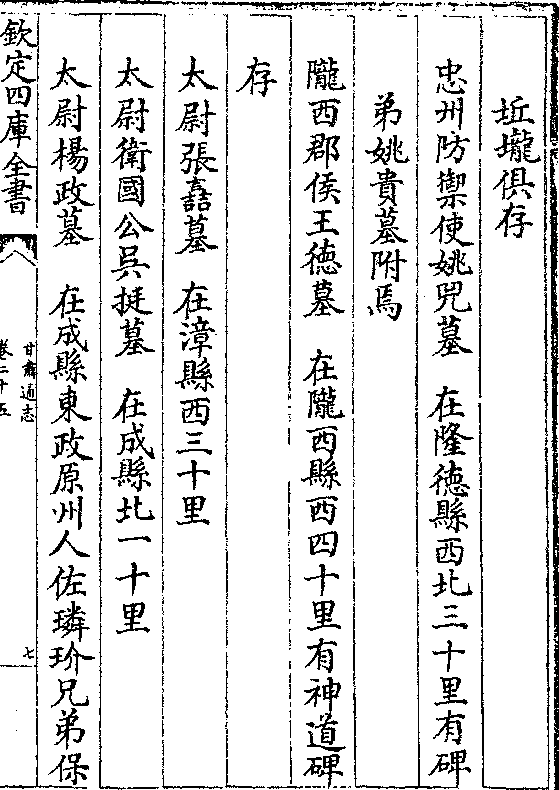 坵壠俱存
忠州防禦使姚兕墓　在隆德縣西北三十里有碑
弟姚貴墓附焉
隴西郡侯王德墓　在隴西縣西四十里有神道碑
存
太尉張嚞墓　在漳縣西三十里
太尉衛國公吳挺墓　在成縣北一十里
太尉楊政墓　在成縣東政原州人佐璘玠兄弟保
欽定四庫全書
甘肅通志
卷二十五
七